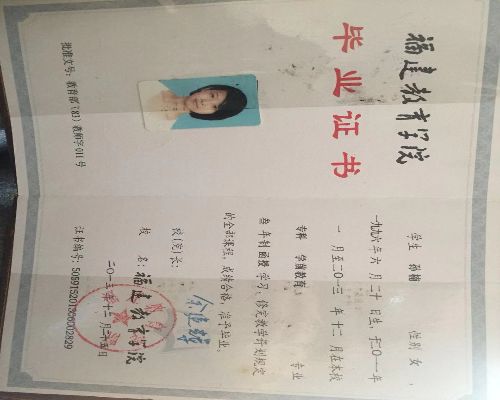 福建教育学院
毕业证书
学生 性别 女，
一九九六年六月二十日生，于二〇一一年
一月至二〇一三年十二月在本校
专科 学前教育 专业
叁年制函授学习，修完教学计划规定
的全部课程，成绩合格，准予毕业。
校(院)长：
校 名：福建教育学院
证书编号：509915201306002829
批准文号：教育部(82)教师字011号